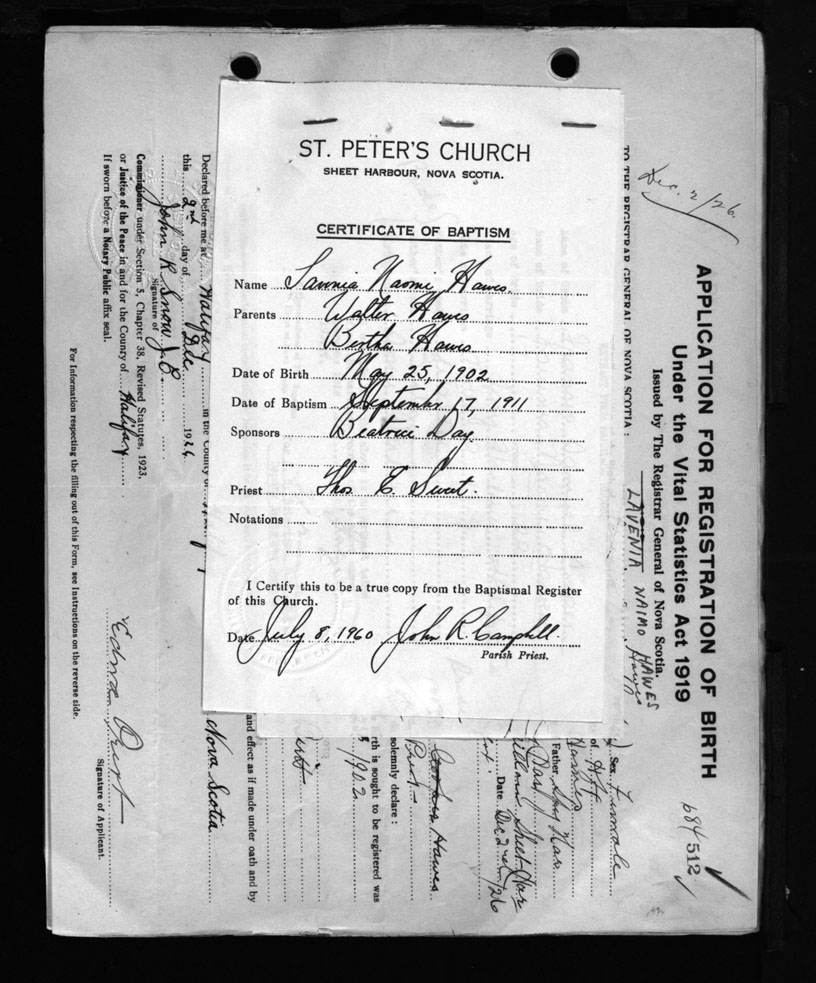 ST. PETER'S CHURCH
SHEET HARBOUR, NOVA SCOTIA.
CERTIFICATE OF BAPTISM
Name Naomi Hawes
Parents Walter Hawes
Bertha Hawes
Date of Birth May 25, 1902
Date of Baptism September 17, 1911
Sponsors Beatrice Day
Priest Thos E Sweet.
Notations
I Certify this to be a true copy from the Baptismal Register
of this Church.
Date July 8, 1960 John R. Campbell.
Parish Priest.
Dec. 2/26.
APPLICATION FOR REGISTRATION OF BIRTH
Under the Vital Statistics Act 1919
Issued by The Registrar General of Nova Scotia.
LAVENIA NAIMO HAWES
Hawes
TO THE REGISTRAR GENERAL OF NOVA SCOTIA:
684512
Sex Female
of
Father
Date Dec 2nd/26
Hawes
solemnly declare:
rth is sought to be registered was
1902
and effect as if made under oath and by
Nova Scotia
Declared before me at Halifax in the County of
this 2nd day of Dec 1926
John R Snow J.P.
Signature of
Commissioner under Section 5, Chapter 38, Revised Statutes, 1923.
or Justice of the Peace in and for the County of Halifax
If sworn before a Notary Public affix seal.
Edna
Signature of Applicant.
For Information respecting the filling out of this Form, see Instructions on the reverse side.